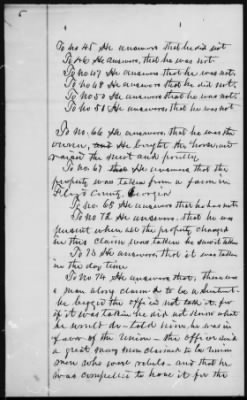 To no 45 He answers that he did not
To 46 He answers, that he was not
To no 47 He answers that he was not,
To no 48 He answers that he did not,
To no 50 He answers that he was not
To no 51 He answers, that he was not
To no. 66 He answers, that he was the
owner, He bought the horse and
raised the meat and poultry
To no. 67 He answers that the
property was taken from a farm in
Floyd County, Georgia
To no. 68 He answers that he has not
To no 72 He answers, that he was
present when all the property charged
in this claim was taken he saw it taken
To 73 He answers, that it was taken
in the day time
To no 74 He answers that, there was
a man along claimed to be a
he begged the officer not take it, for
if it was taken he did not know what
he would do - told him he was in
favor of the Union - the officer said
a great many men claimed to be Union
men who were rebels - and that he
was compelled to have it for the